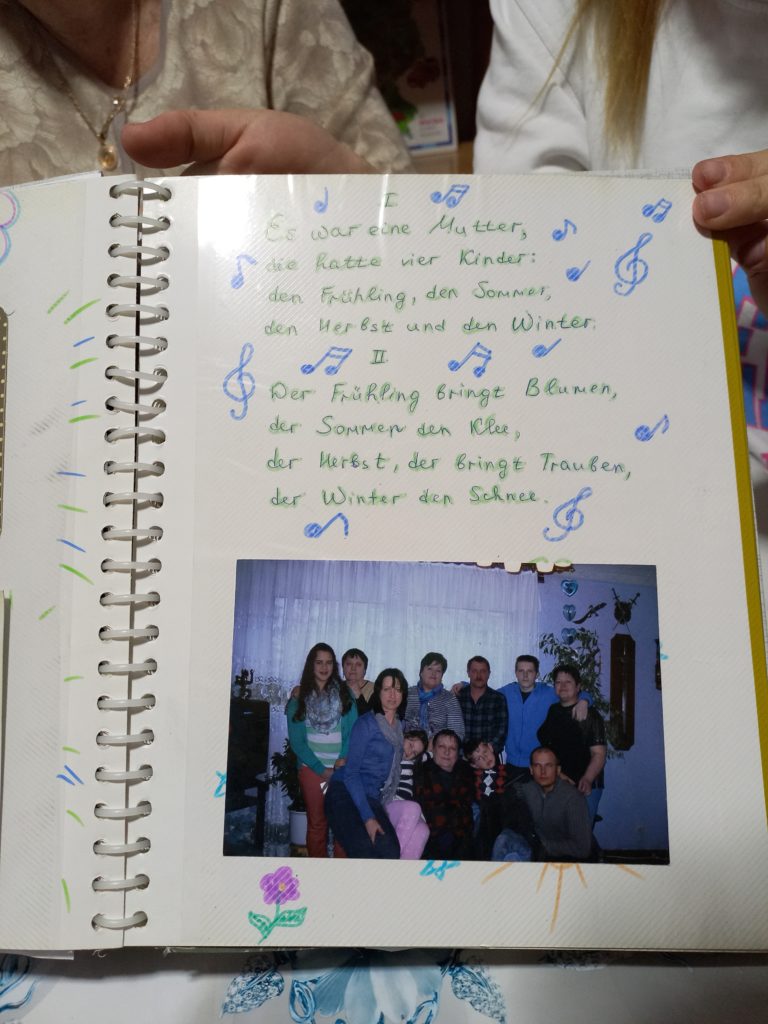 I
Es war eine Mutter,
die hatte vier Kinder:
den Frühling, den Sommer,
den Herbst und den Winter.
II
Der Frühling bringt Blumen,
der Sommer den Klee,
der Herbst, der bringt Trauben,
der Winter den Schnee.